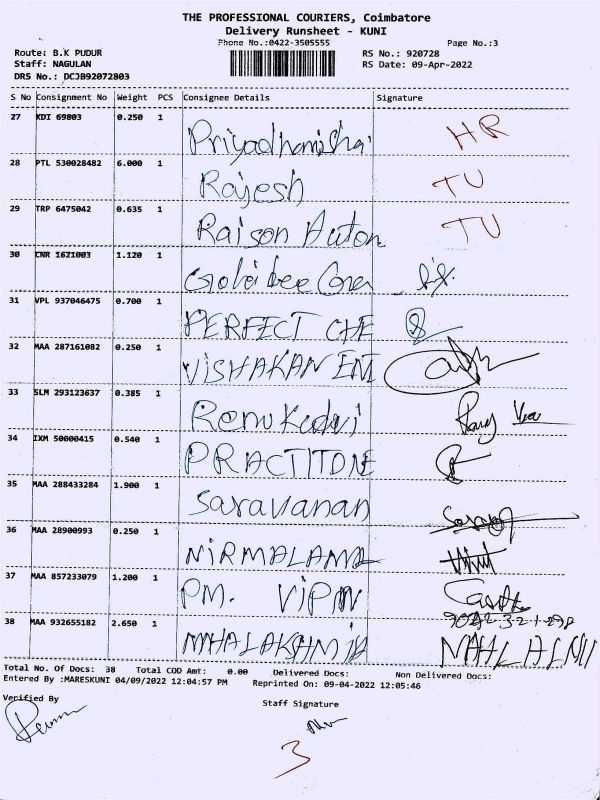 THE PROFESSIONAL COURIERS, Coimbatore
Delivery Runsheet - KUNI
Phone No.:0422-3505555 Page No.:3
Route: B.K PUDUR RS No.: 920728
Staff: NAGULAN RS Date: 09-Apr-2022
DRS No.: DCJB92072803
S No Consignment No Weight PCS Consignee Details Signature
27 KDI 69803 0.250 1 HR
28 PTL 530028482 6.000 1 Rajesh TU
29 TRP 6475042 0.635 1 Raison Auton TU
30 CNR 1621003 1.120 1
31 VPL 937046475 0.700 1 PERFECT CHE
32 MAA 287161082 0.250 1 VISHAKAN ENT
33 SLM 293123637 0.385 1
34 IXM 50000415 0.540 1 PRACTITONE
35 MAA 288433284 1.900 1 Saravanan
36 MAA 28900993 0.250 1
37 MAA 857233079 1.200 1 PM. VIPIN
38 MAA 932655182 2.650 1
Total No. Of Docs: 38 Total COD Amt: 0.00 Delivered Docs: Non Delivered Docs:
Entered By :MARESKUNI 04/09/2022 12:04:57 PM Reprinted On: 09-04-2022 12:05:46
Verified By Staff Signature
3